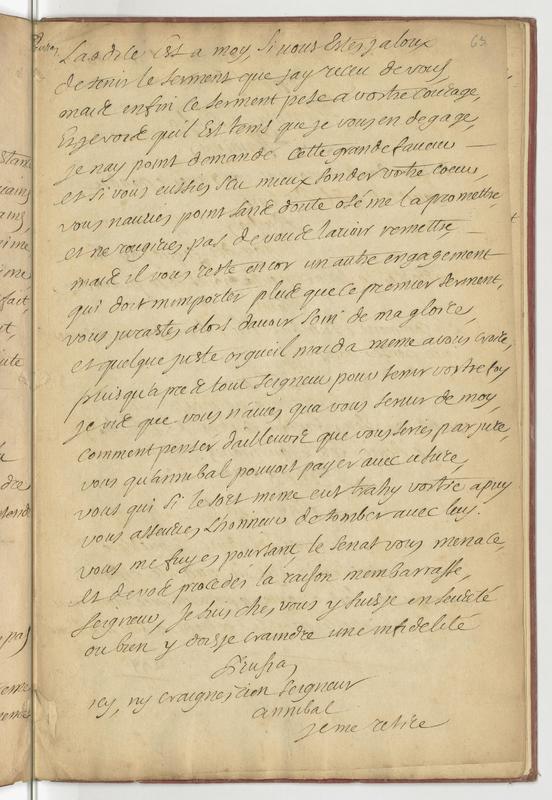 63
Laodice Est a moy, si vous Estes jaloux
de tenir le serment que j'ay receu de vous,
mais enfin ce serment pese a vostre courage,
Et je vois qu'il Est tems que je vous en degage,
je n'ay point demandé cette grande faveur
et si vous eussies sçu mieux sonder vostre coeur,
vous n'auries point sans doute osé me la promettre,
et ne rougires pas de vous l'avoir remettre
mais il vous reste encor un autre engagement
qui doit m'importer plus que ce premier serment,
vous jurastes alors d'avoir soin de ma gloire,
et quelque juste orgueil m'aida meme a vous croire,
puisqu'apres tout seigneur pour tenir vostre foy
je vis que vous n'avies qu'a vous servir de moy,
comment penser d'ailleurs que vous series parjure,
vous qu'annibal pouvoit payer avec usure,
vous qui si le sort meme eut trahy vostre apuy
vous assuries l'honneur de tomber avec luy.
vous me fuyes pourtant, le senat vous menace,
et de vos procedés la raison m'embarrasse,
seigneur, je suis ches vous y suis je en seureté
ou bien y dois je craindre une infidelité
Prusias,
icy, ny craignes rien seigneur
annibal
je me retire